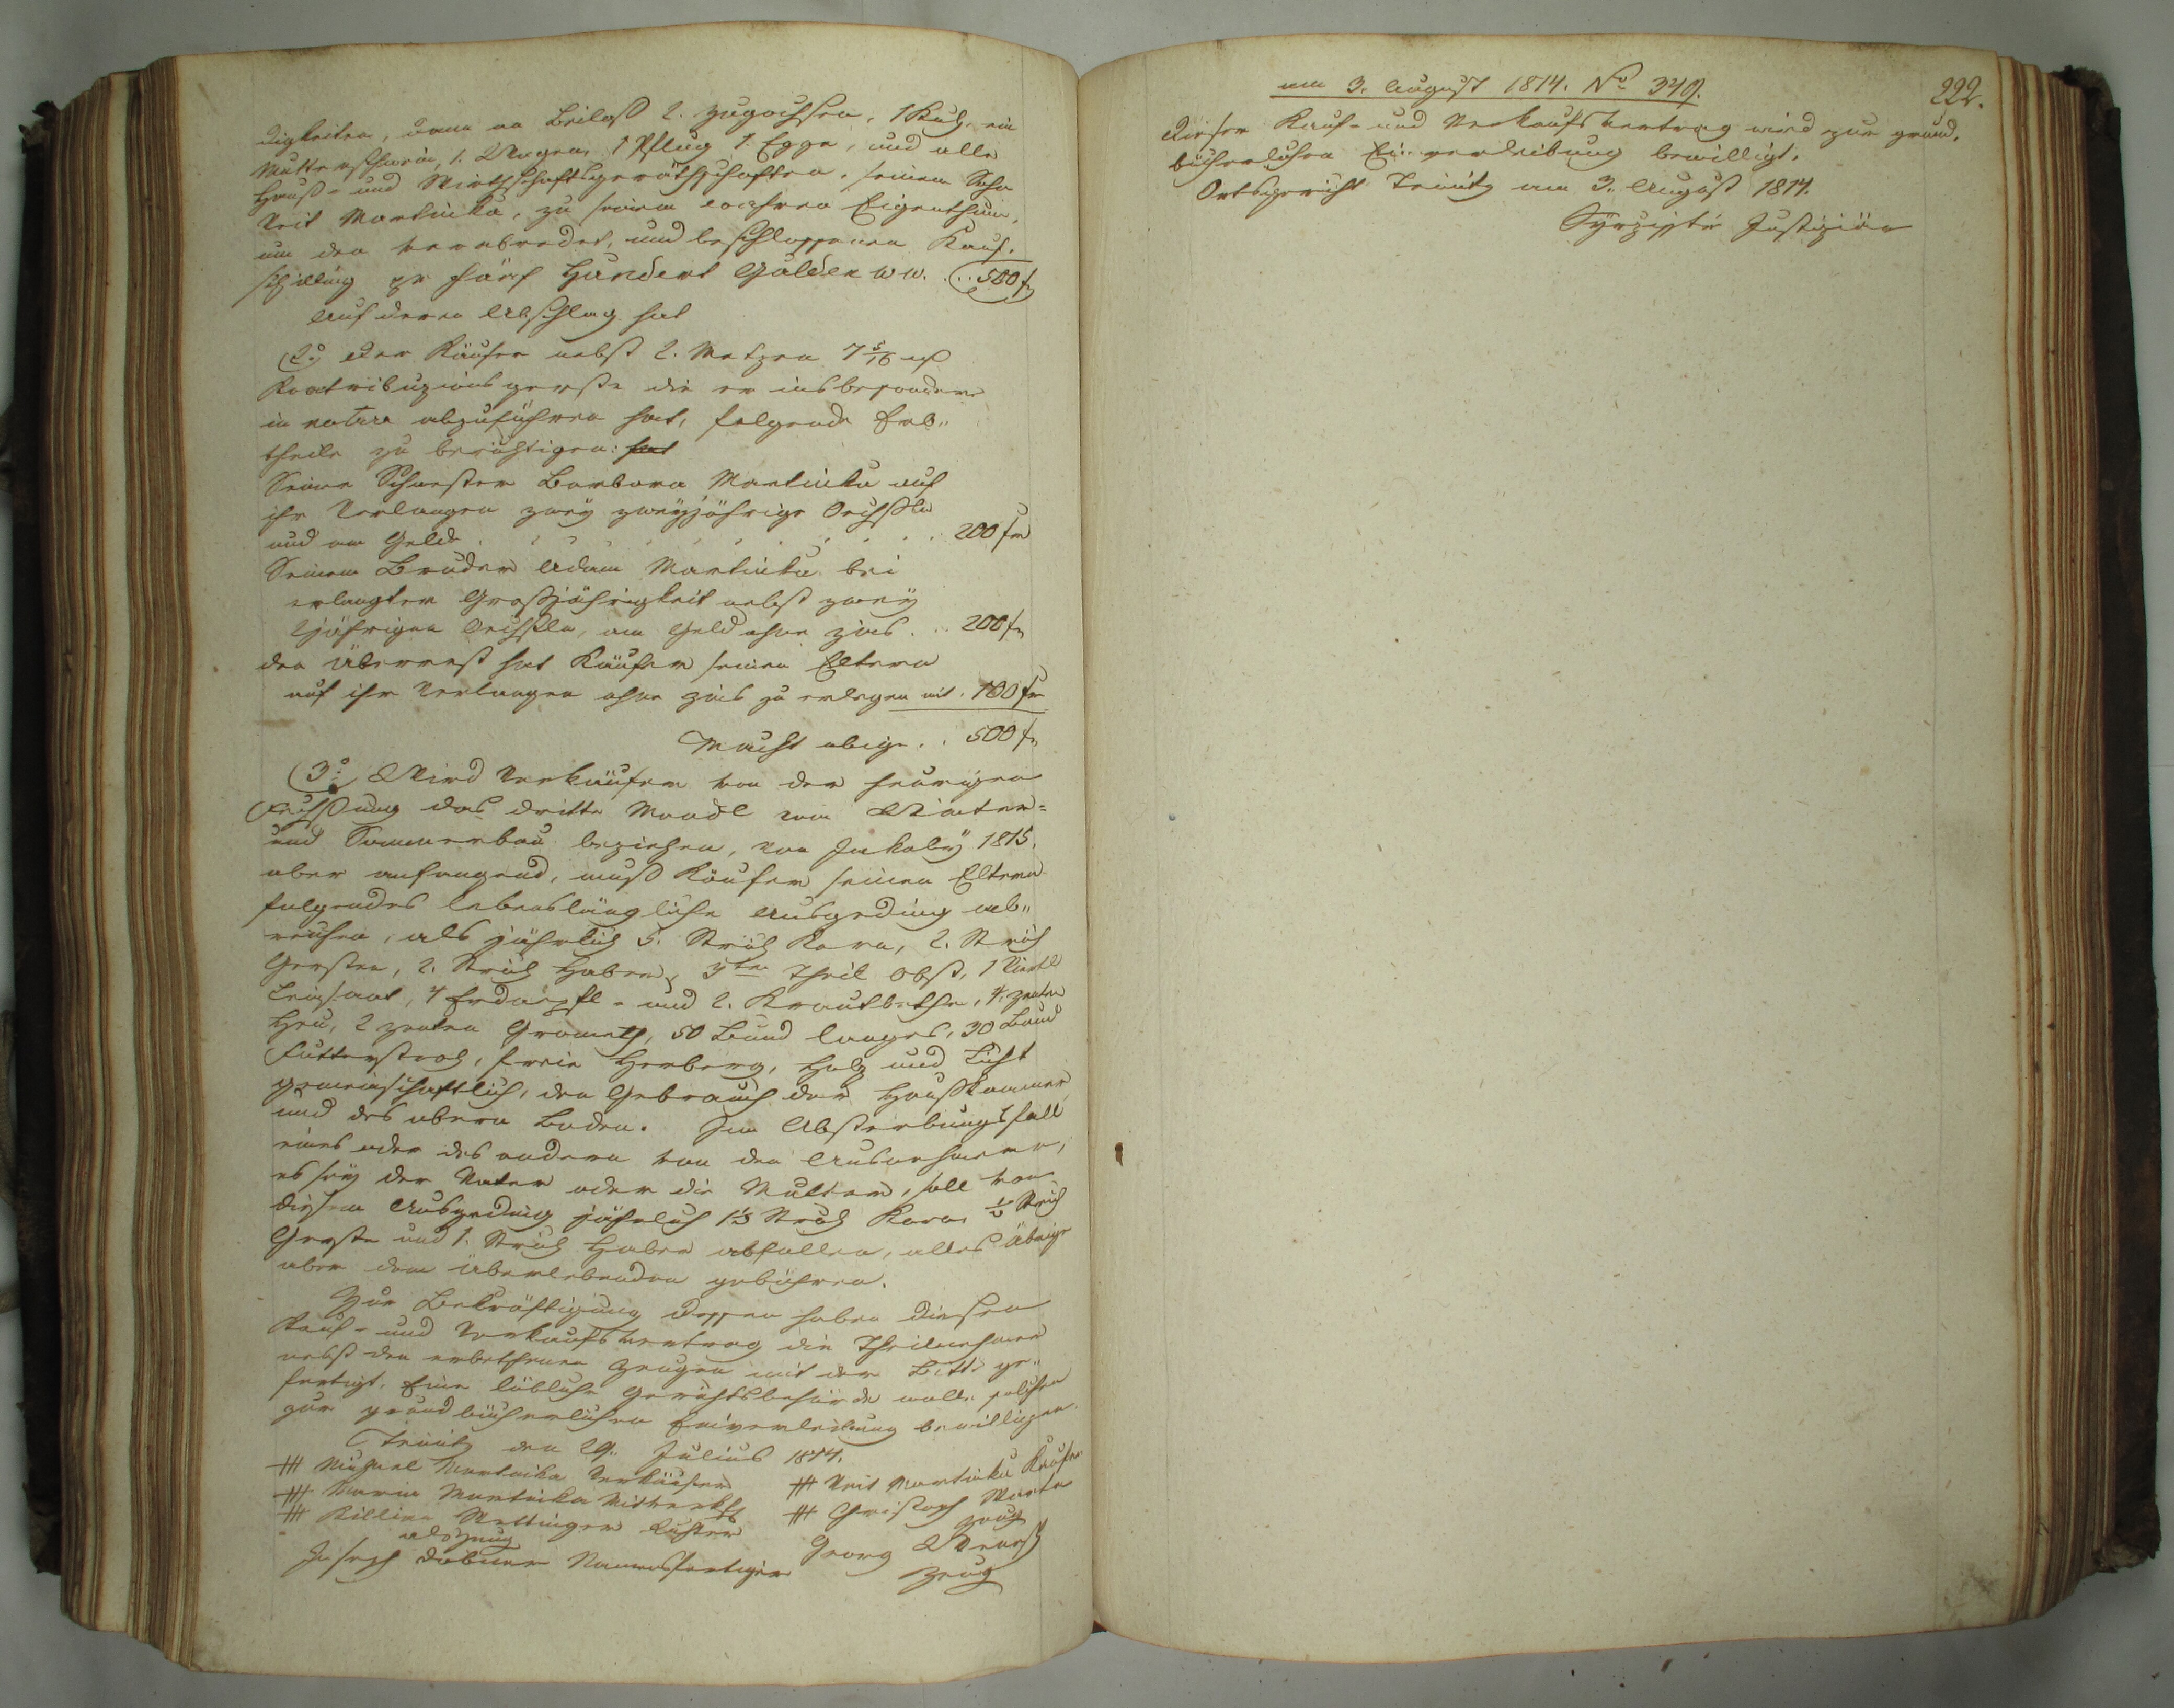 digkeiten, dann an Beilaß 2. Zugochsen, 1 Kuh, ein
Mutterschwein, 1. Wagen, 1 Pflug 1. Egge, und alle
Hauß- und Wirthschaftsgeräthschaften, seinem Sohn
Veit Martinka, zu seinem wahren Eigenthum,
um den verabredet, und beschlossenen Kauf-
schilling pr fünf Hundert Gulden W W. .. 500 f
Auf deren Abschlag hat
2o. Der Käufer nebst 2. Metzen 7 5/16
Kontribuzionsgerste die er insbesondere
in natura abzuführen hat, folgende Erb-
theile zu berichtigen: hat
Seiner Schwester Barbara Martinka auf
ihr Verlangen zwey zweyjährige Öchsln
und an Geld . . . . . . . . 200 fr
Seinem Bruder Adam Martinka bei
erlangter Großjährigkeit nebst zwey
2jährigen Öchsln, an Geld ohne Zins . .. 200 fr
den Überrest hat Käufer seinen Eltern
auf ihr Verlangen ohne Zins zu erlegen mit . 100 fr
Macht obige . . 500 fr
3o: Wird Verkäufer von der heurigen
Fechsung das dritte Mandl vom Winter-
und Sommerbau beziehen, von Jakoby 1815.
aber anfangend, muß Käufer seinen Eltern
folgendes lebenslängliche Ausgeding ab-
reichen, als jährlich 5. Strich Korn, 2. Strich
Gersten, 2. Strich Haber, 3ten Theil Obst, 1 Viertl
Leinsaat, 4 Erdaepfl- und 2. Krautbethe, 4. Zenten
Heu, 2 Zenten Grometh, 50 Bund langes, 30 Bund
Futterstroh, freie Herberg, Holz und Licht
gemeinschaftlich, den Gebrauch der Haußkammer
und des obern Boden. Im Absterbungsfall
eines oder des andern von den Ausnehmern,
es sey der Vater oder die Mutter, soll von
diesem Ausgeding jährlich 1½ Strich Korn, ½ Strich
Gerste und 1. Strich Haber abfallen, alles übrige
aber dem überlebenden gebühren.
Zur Bekräftigung dessen haben diesen
Kauf- und Verkaufsvertrag die Theilnehmer
nebst den erbethenen Zeugen mit der Bitte ge-
fertigt, Eine löbliche Gerichtsbehörde wolle solchen
zur grundbücherlichen Einverleibung bewilligen.
Teinitz den 29. Julius 1814.
### Michael Martinka Verkäufer ### Veit Martinka Käufer
### Maria Martinka ### Christoph
### Killian Richter Zeug
als Zeug Georg
Joseph Namensfertiger Zeug
222.
am 3. August 1814. No 349.
Dieser Kauf- und Verkaufsvertrag wird zur grund-
bücherlichen Einverleibung bewilligt.
Ortsgericht Teinitz am 3. August 1814.
Justiziär